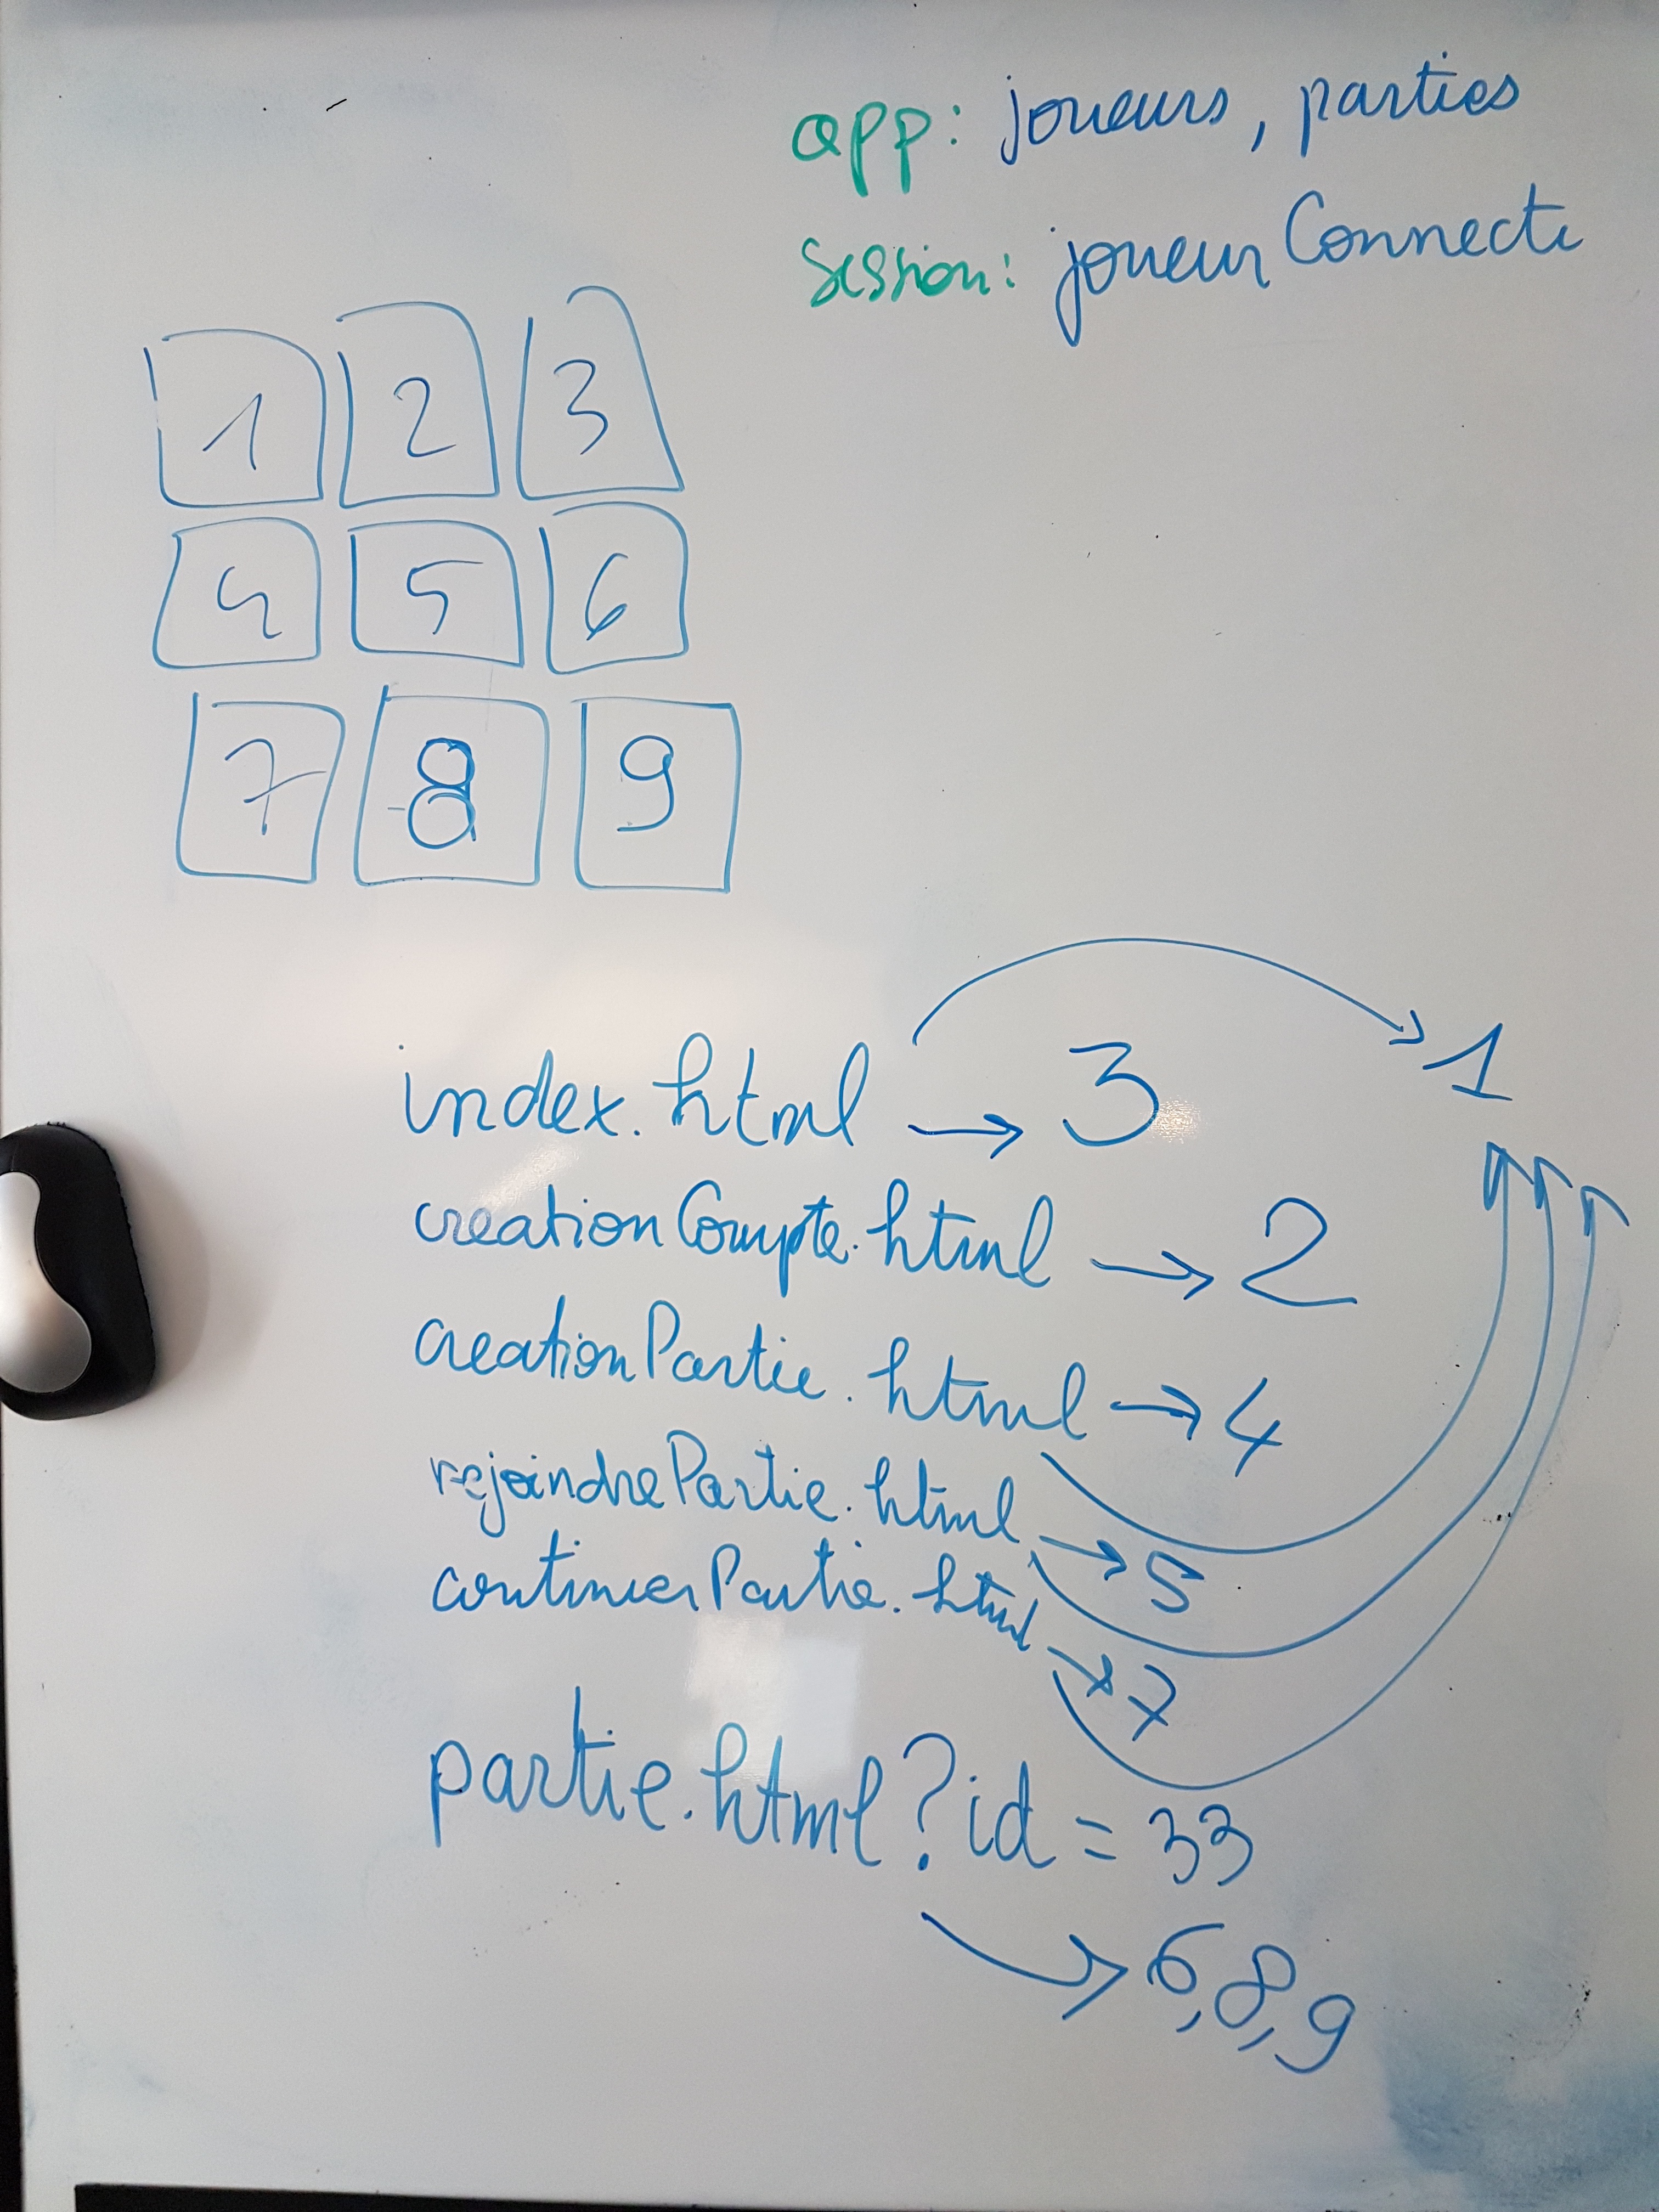 app: joueurs, parties
Session: joueurConnecte
1 2 3
4 5 6
7 8 9
index.html → 3 1
creationCompte.html → 2
creationPartie.html → 4
rejoindrePartie.html → 5
continuerPartie.html → 7
partie.html?id=33
→ 6,8,9